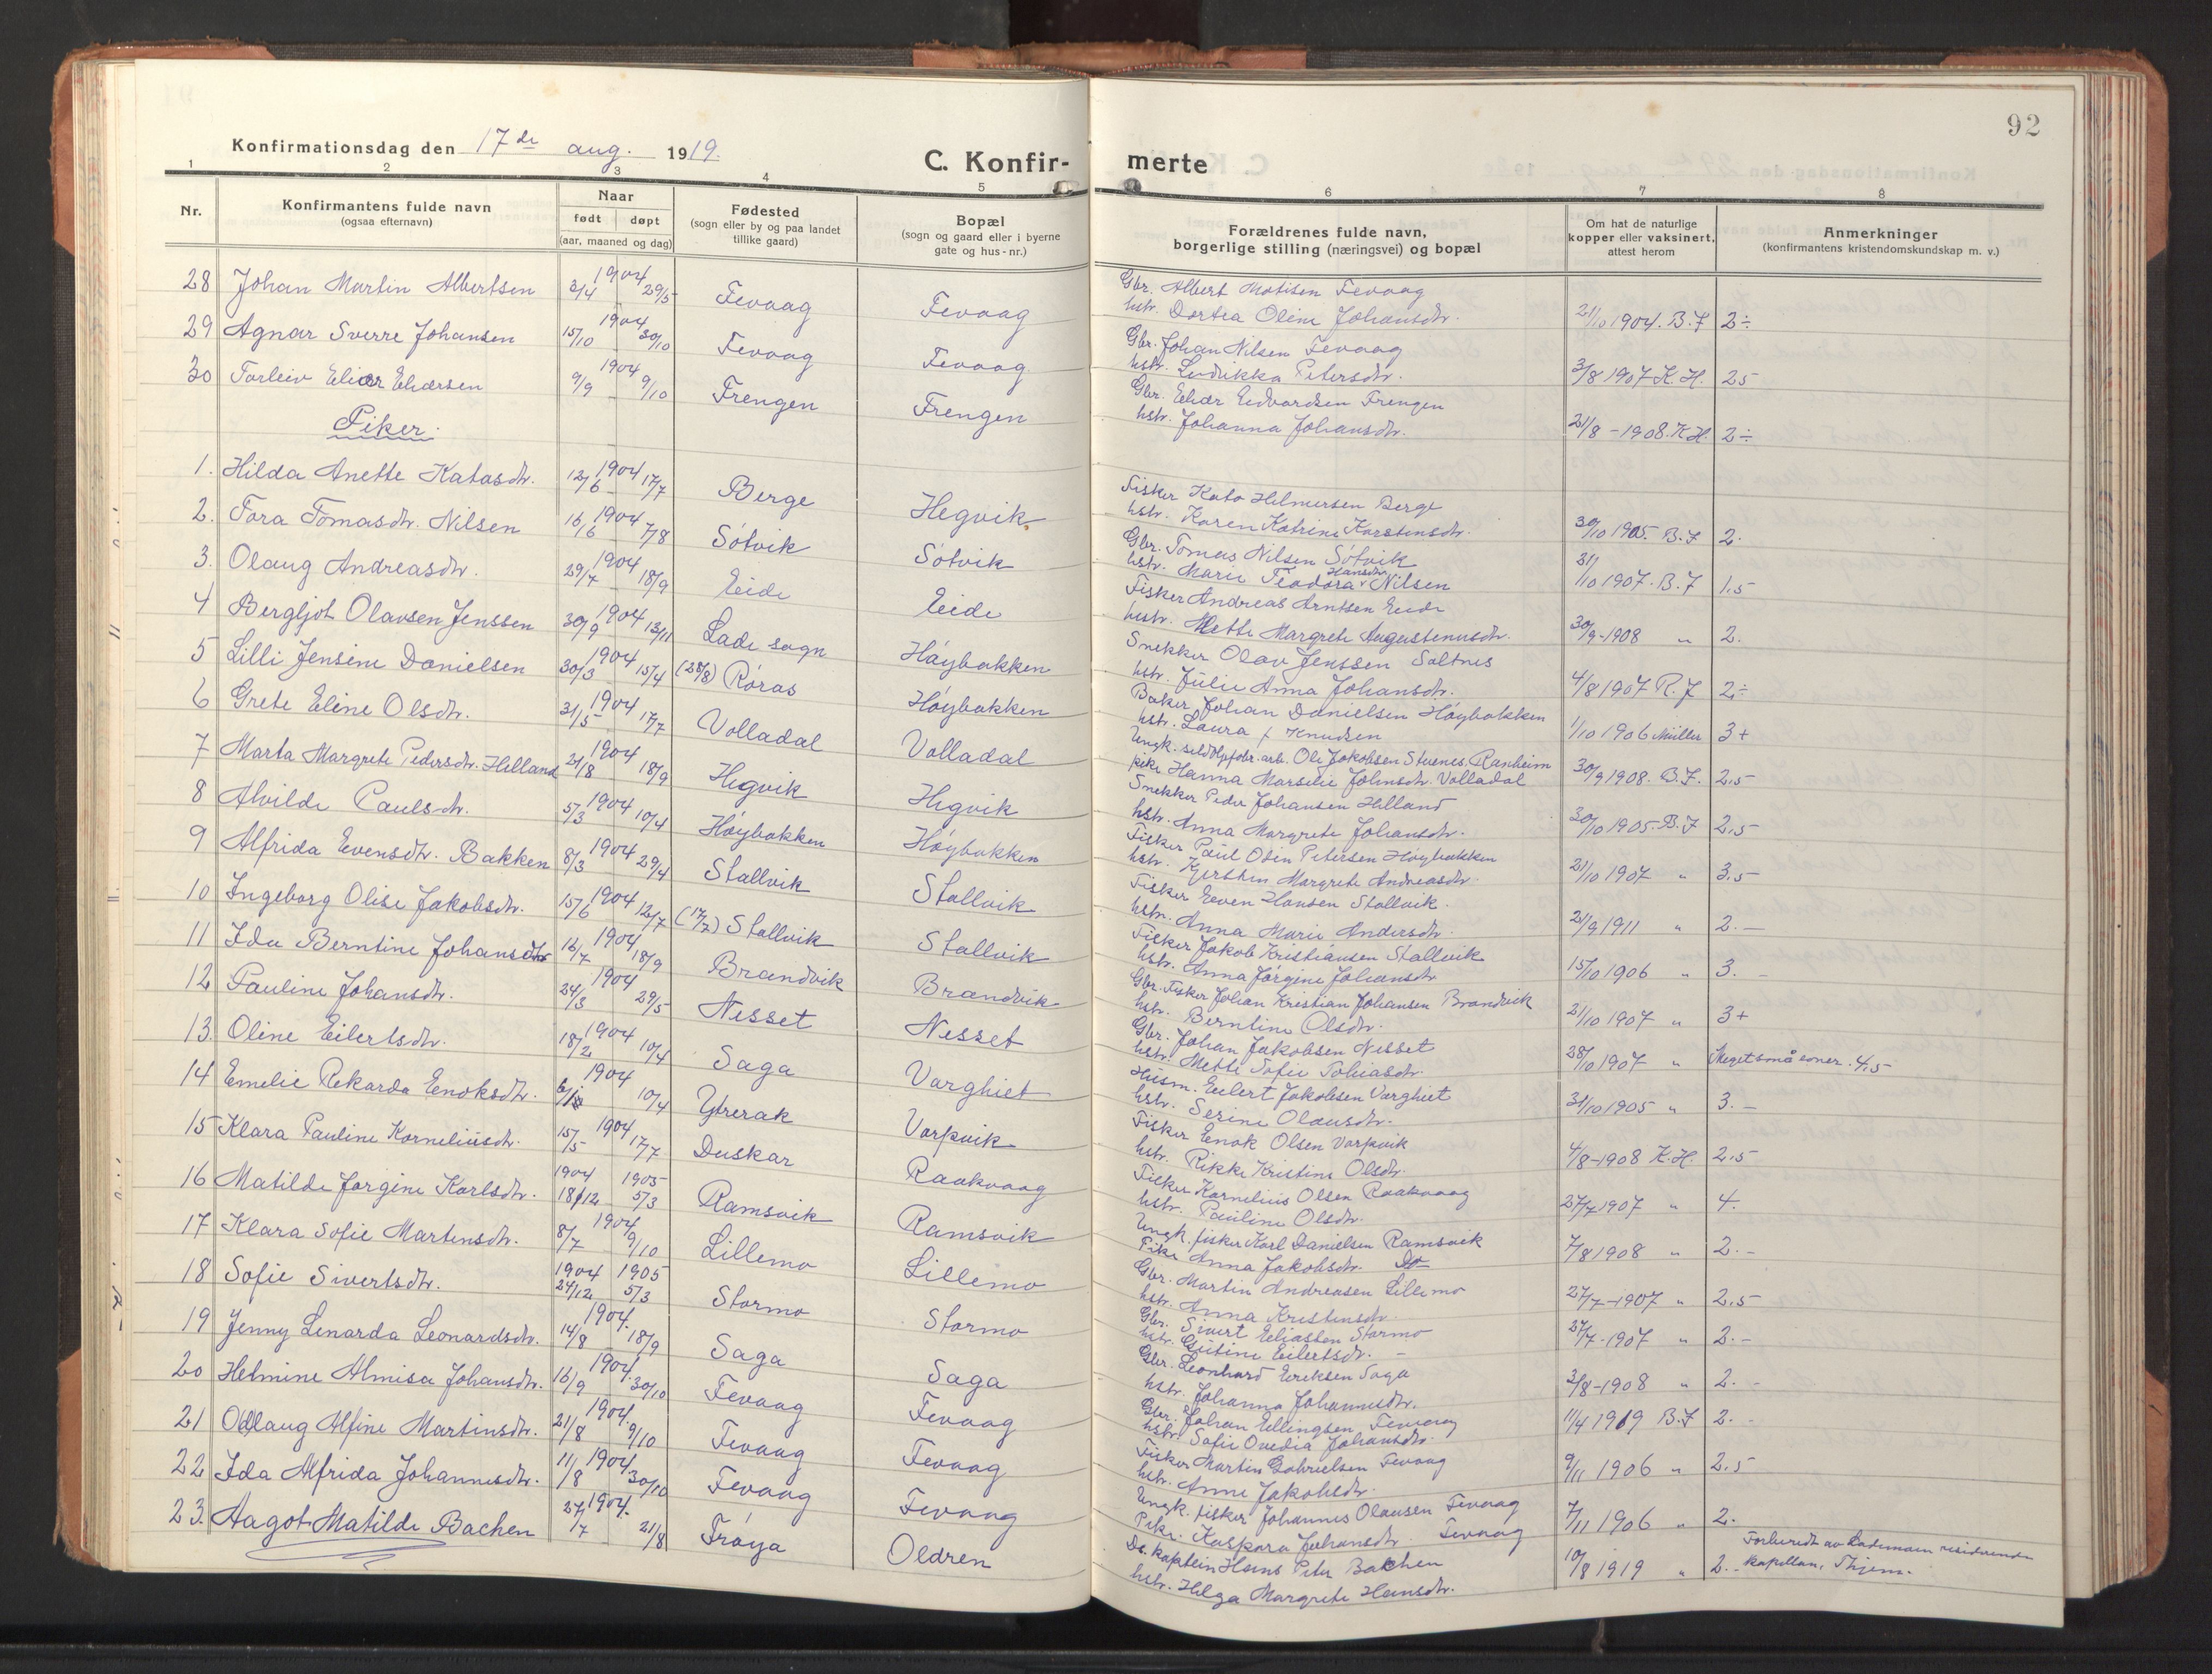 92
Konfirmationsdag den 17de aug. 1919.
C. Konfirmerte
1 2 3 4 5 6 7 8
Nr.
Konfirmantens fulde navn (ogsaa efternavn)
Naar født døpt (aar, maaned og dag)
Fødested (sogn eller by og paa landet tillike gaard)
Bopæl (sogn og gaard eller i byerne gate og hus-nr.)
Forældrenes fulde navn, borgerlige stilling (næringsvei) og bopæl
Om hat de naturlige kopper eller vaksinert, attest herom
Anmerkninger (konfirmantens kristendomskundskap m. v.)
28 Johan Martin Albertsen 3/4 1904 29/5 Fevaag Fevaag Gbr. Albert Matisen Fevaag hstr. Dortea Oline Johansdtr. 21/10 1904. B.F 2÷
29 Agnar Sverre Johansen 15/10 1904 30/10 Fevaag Fevaag Gbr. Johan Nilsen Fevaag hstr. Ludikka Petersdtr. 3/8 1907 K.H. 2.5
30 Torleiv Eliær Eliærsen 9/9 1904 9/10 Frengen Frengen Gbr. Eliær Edvardsen Frengen hstr. Johanna Johansdtr. 21/8 - 1908. K.H. 2÷
Piker.
1. Hilda Anette Katosdtr. 12/6 1904 17/7 Berge Hegvik Fisker Kato Helmersen Berge hstr. Karen Katrine Karstensdtr. 30/10 1905. B.F 2.
2. Tora Tomasdtr. Nilsen 16/6 1904 7/8 Søtvik Søtvik Gbr. Tomas Nilsen Søtvik hstr. Marie Teodora Hansdtr Nilsen 31/10 1907. B.F 1,5
3. Olaug Andreasdtr. 29/7 1904 18/9 Eide Eide Fisker Andreas Arntsen Eide hstr. Mette Margrete Augustenusdtr. 30/9-1908 " 2.
4 Bergljot Olavsen Jenssen 30/9 1904 13/11 Lade sogn Høybakken Snekker Olav Jenssen Saltnes hstr. Julie Anna Johansdtr. 4/8 1907 R.F 2÷
5 Lilli Jensine Danielsen 30/3 1904 15/4 (28/8) Røros Høybakken Baker Johan Danielsen Høybakken hstr. Laura f Knudsen 1/10 1906 Müller 3+
6 Grete Eline Olsdtr. 31/5 1904 17/7 Volladal Volladal Ungk. arb. Ole Jakobsen Stuenes, Ranheim pike Hanna Marselie Johnsdtr. Volladal 30/9 1908. B.F. 2,5
7 Marta Margrete Pedersdtr. Helland 21/8 1904 18/9 Hegvik Hegvik Snekker Peder Johansen Helland hstr. Anna Margrete Johansdtr. 30/10 1905. B.F 2,5
8 Alvilde Paulsdtr. 5/3 1904 10/4 Høybakken Høybakken Fisker Paul Odin Petersen Høybakken hstr. Kjersten Margrete Andreasdtr. 21/10 1907 " 3.5
9 Alfrida Evensdtr. Bakken 8/3 1904 29/4 Stallvik Stallvik Fisker Even Hansen Stallvik. hstr. Anna Marie Andersdtr. 21/9 1911 " 2. —
10 Ingeborg Olise Jakobsdtr. 15/6 1904 12/7 (17/7) Stallvik Stallvik Fisker Jakob Kristiansen Stallvik hstr. Anna Jørgine Johansdtr 15/10 1906 " 3. -
11 Ida Berntine Johansdtr 16/7 1904 18/9 Brandvik Brandvik Gbr. Fisker Johan Kristian Johansen Brandvik hstr. Berntine Olsdtr. 21/10 1907 " 3+
12 Pauline Johansdtr. 24/3 1904 29/5 Nesset Nesset Gbr. Johan Jakobsen Nesset hstr. Mette Sofie Tobiasdtr. 28/10 1907 " Meget små evner. 4,5
13. Oline Eilertsdtr. 18/2 1904 10/4 Saga Varghiet Husm. Eilert Jakobsen Varghiet hstr. Serine Olausdtr. 31/10 1905 " 3. -
14 Emelie Rekarda Enoksdtr. 1904 10/4 Ytrerak Varpvik Fisker Enok Olsen Varpvik hstr. Rikke Kristine Olsdtr. 4/8-1908 K.H. 2,5
15 Klara Pauline Korneliusdtr. 15/5 1904 17/7 Duskar Raakvaag Fisker Kornelius Olsen Raakvaag hstr. Pauline Olsdtr. 27/7 1907 " 4.
16 Matilde Jørgine Karlsdtr. 1904 18/12 1905 5/3 Ramsvik Ramsvik Ungk. fisker Karl Danielsen Ramsvik Pike Anna Jakobsdtr. Do 7/8 1908 " 2. -
17 Klara Sofie Martinsdtr. 8/7 1904. 9/10 Lillemo Lillemo Gbr. Martin Andreasen Lillemo hstr. Anna Kristensdtr. 27/7-1907 " 2,5
18 Sofie Sivertsdtr. 1904 24/12 1905 5/3 Stormo Stormo Gbr. Sivert Eliassen Stormo hstr. Eilertsdtr. - 27/7-1907 " 2. -
19 Jenny Lenarda Leonardsdtr. 14/8 1904. 18/9 Saga Saga Gbr. Leonhard Eriksen Saga hstr. Johanna Johannesdtr. 3/8-1908 " 2. -
20 Helmine Almisa Johansdtr. 16/9 1904. 30/10 Fevaag Fevaag Gbr. Johan Ellingsen Fevaag hstr. Sofie Ovedia Johansdtr. 11/4 1919 B.F 2. -
21 Odlaug Alfine Martinsdtr. 21/8 1904. 9/10 Fevaag Fevaag Fisker Martin Gabrielsen Fevaag hstr. Anne Jakobsdtr. 9/11 1906 " 2,5
22 Ida Alfrida Johannesdtr. 11/8 1904. 30/10 Fevaag Fevaag Ungk. fisker Johannes Olausen Fevaag Pike. Kaspara Johansdtr Fevaag 7/11 1906 " 2.
23. Aagot Matilde Bachen 27/7 1904. 21/8 Frøya Oldren Ds. kaptein Hans Peter Bachen hstr. Helga Margrete Hansdtr. 10/8 1919 " 2. - Forberedt av residerende kapellan,